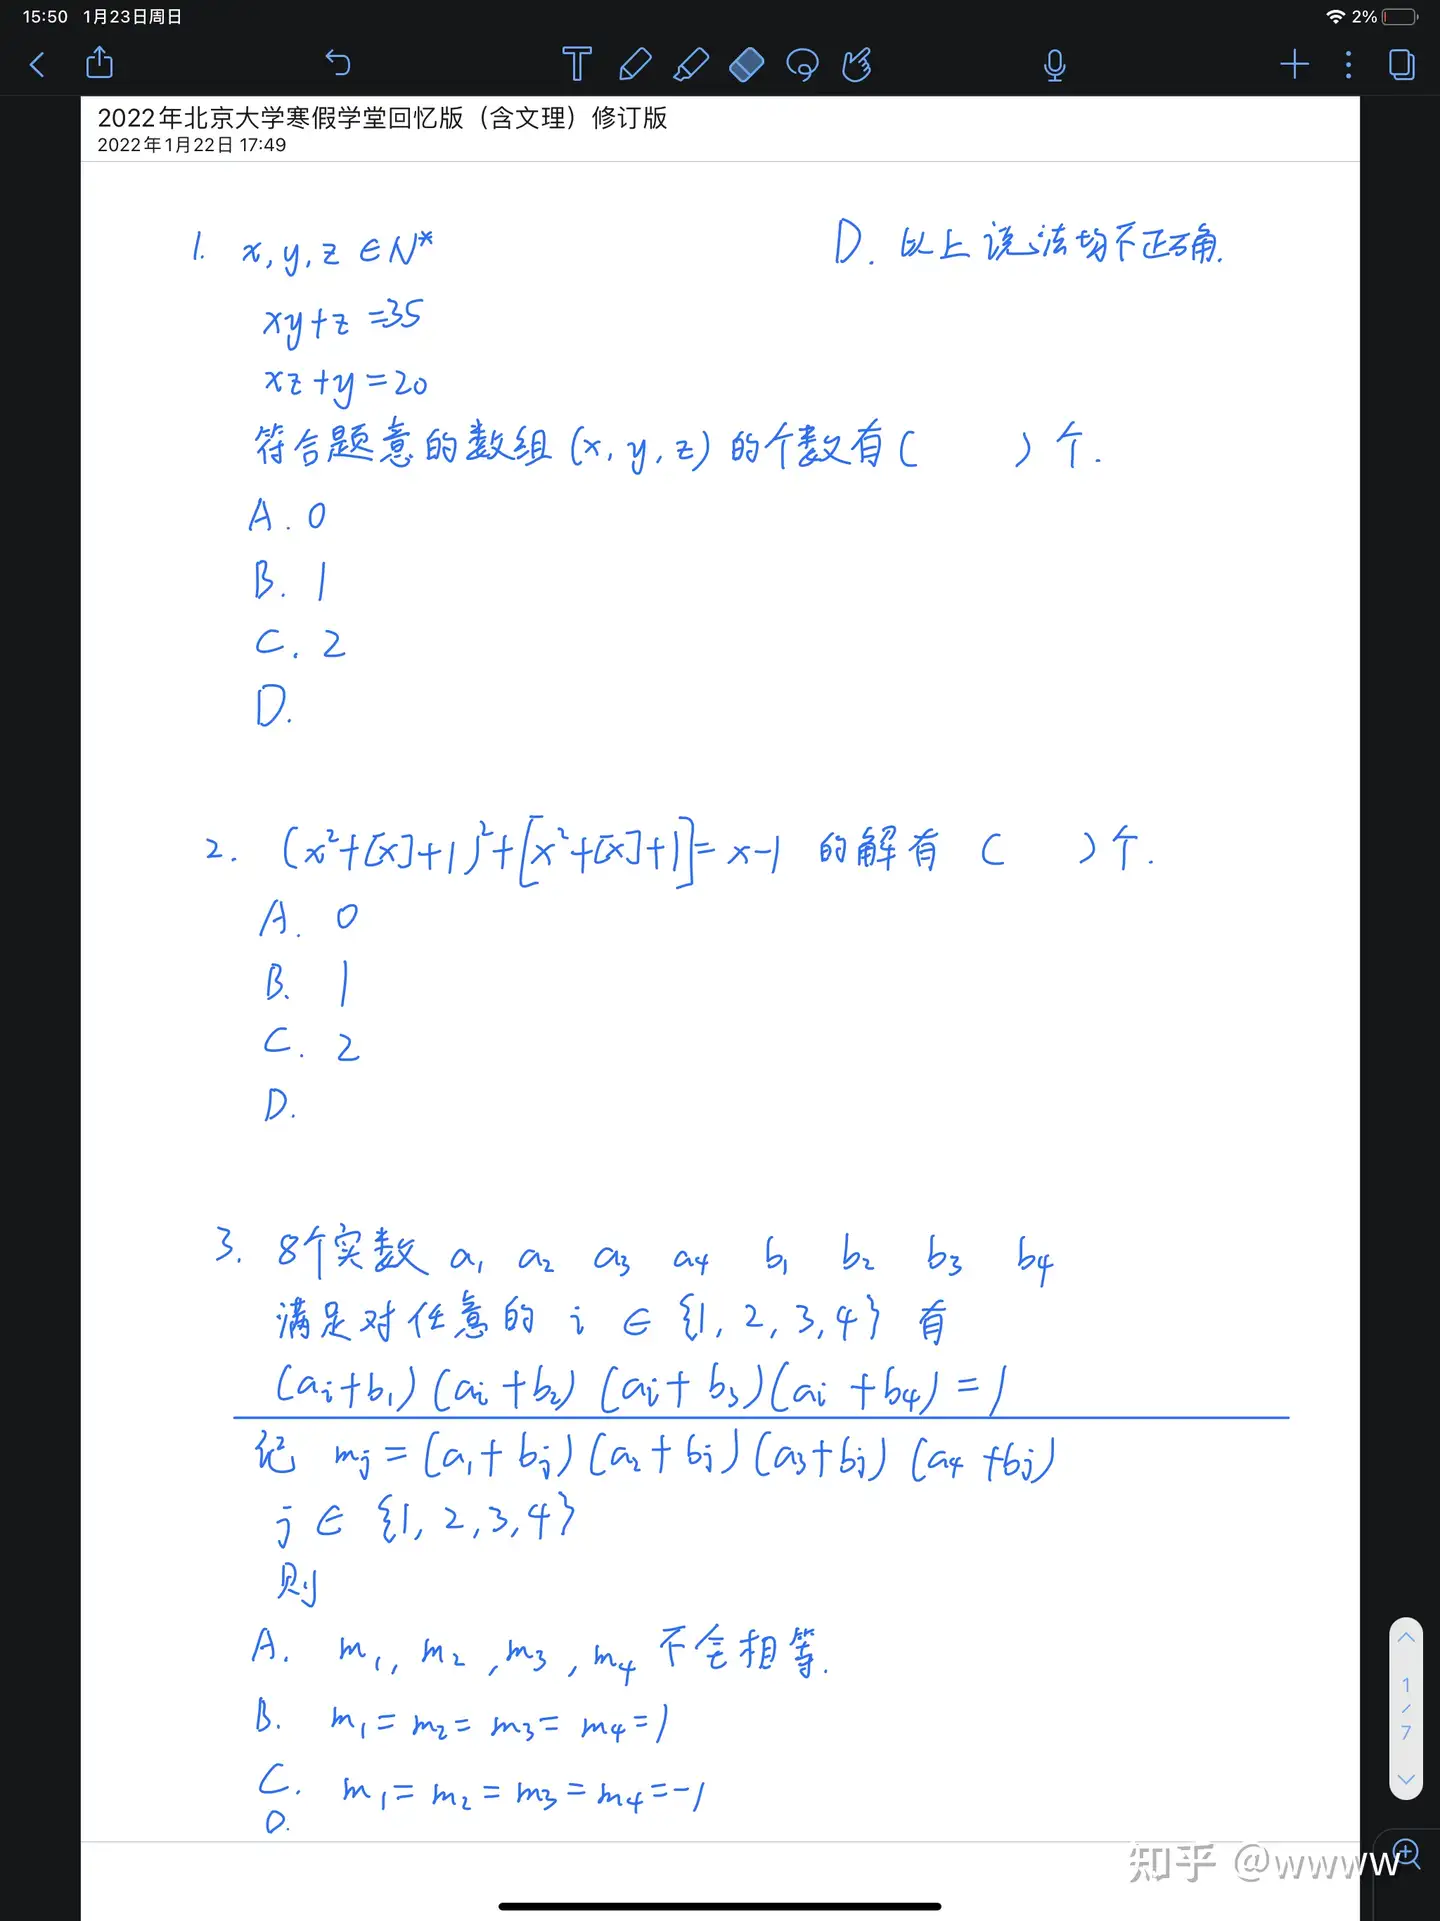 15:50 1月23日周日
2%
2022年北京大学寒假学堂回忆版（含文理）修订版
2022年1月22日 17:49
1. x, y, z ∈ N*
D. 以上说法均不正确.
xy+z =35
xz+y=20
符合题意的数组 (x, y, z) 的个数有 ( ) 个.
A. 0
B. 1
C. 2
D.
2. (x²+[x]+1)²+[x²+[x]+1]= x-1 的解有 ( ) 个.
A. 0
B. 1
C. 2
D.
3. 8个实数 a₁ a₂ a₃ a₄ b₁ b₂ b₃ b₄
满足对任意的 i ∈ {1, 2, 3, 4} 有
(aᵢ+b₁) (aᵢ+b₂) (aᵢ+b₃) (aᵢ+b₄) = 1
记 mⱼ = (a₁+bⱼ) (a₂+bⱼ) (a₃+bⱼ) (a₄+bⱼ)
j ∈ {1, 2, 3, 4}
则
A. m₁, m₂, m₃, m₄ 不会相等.
B. m₁= m₂= m₃= m₄=1
C. m₁= m₂= m₃= m₄=-1
D.
1/7
知乎 @wwww